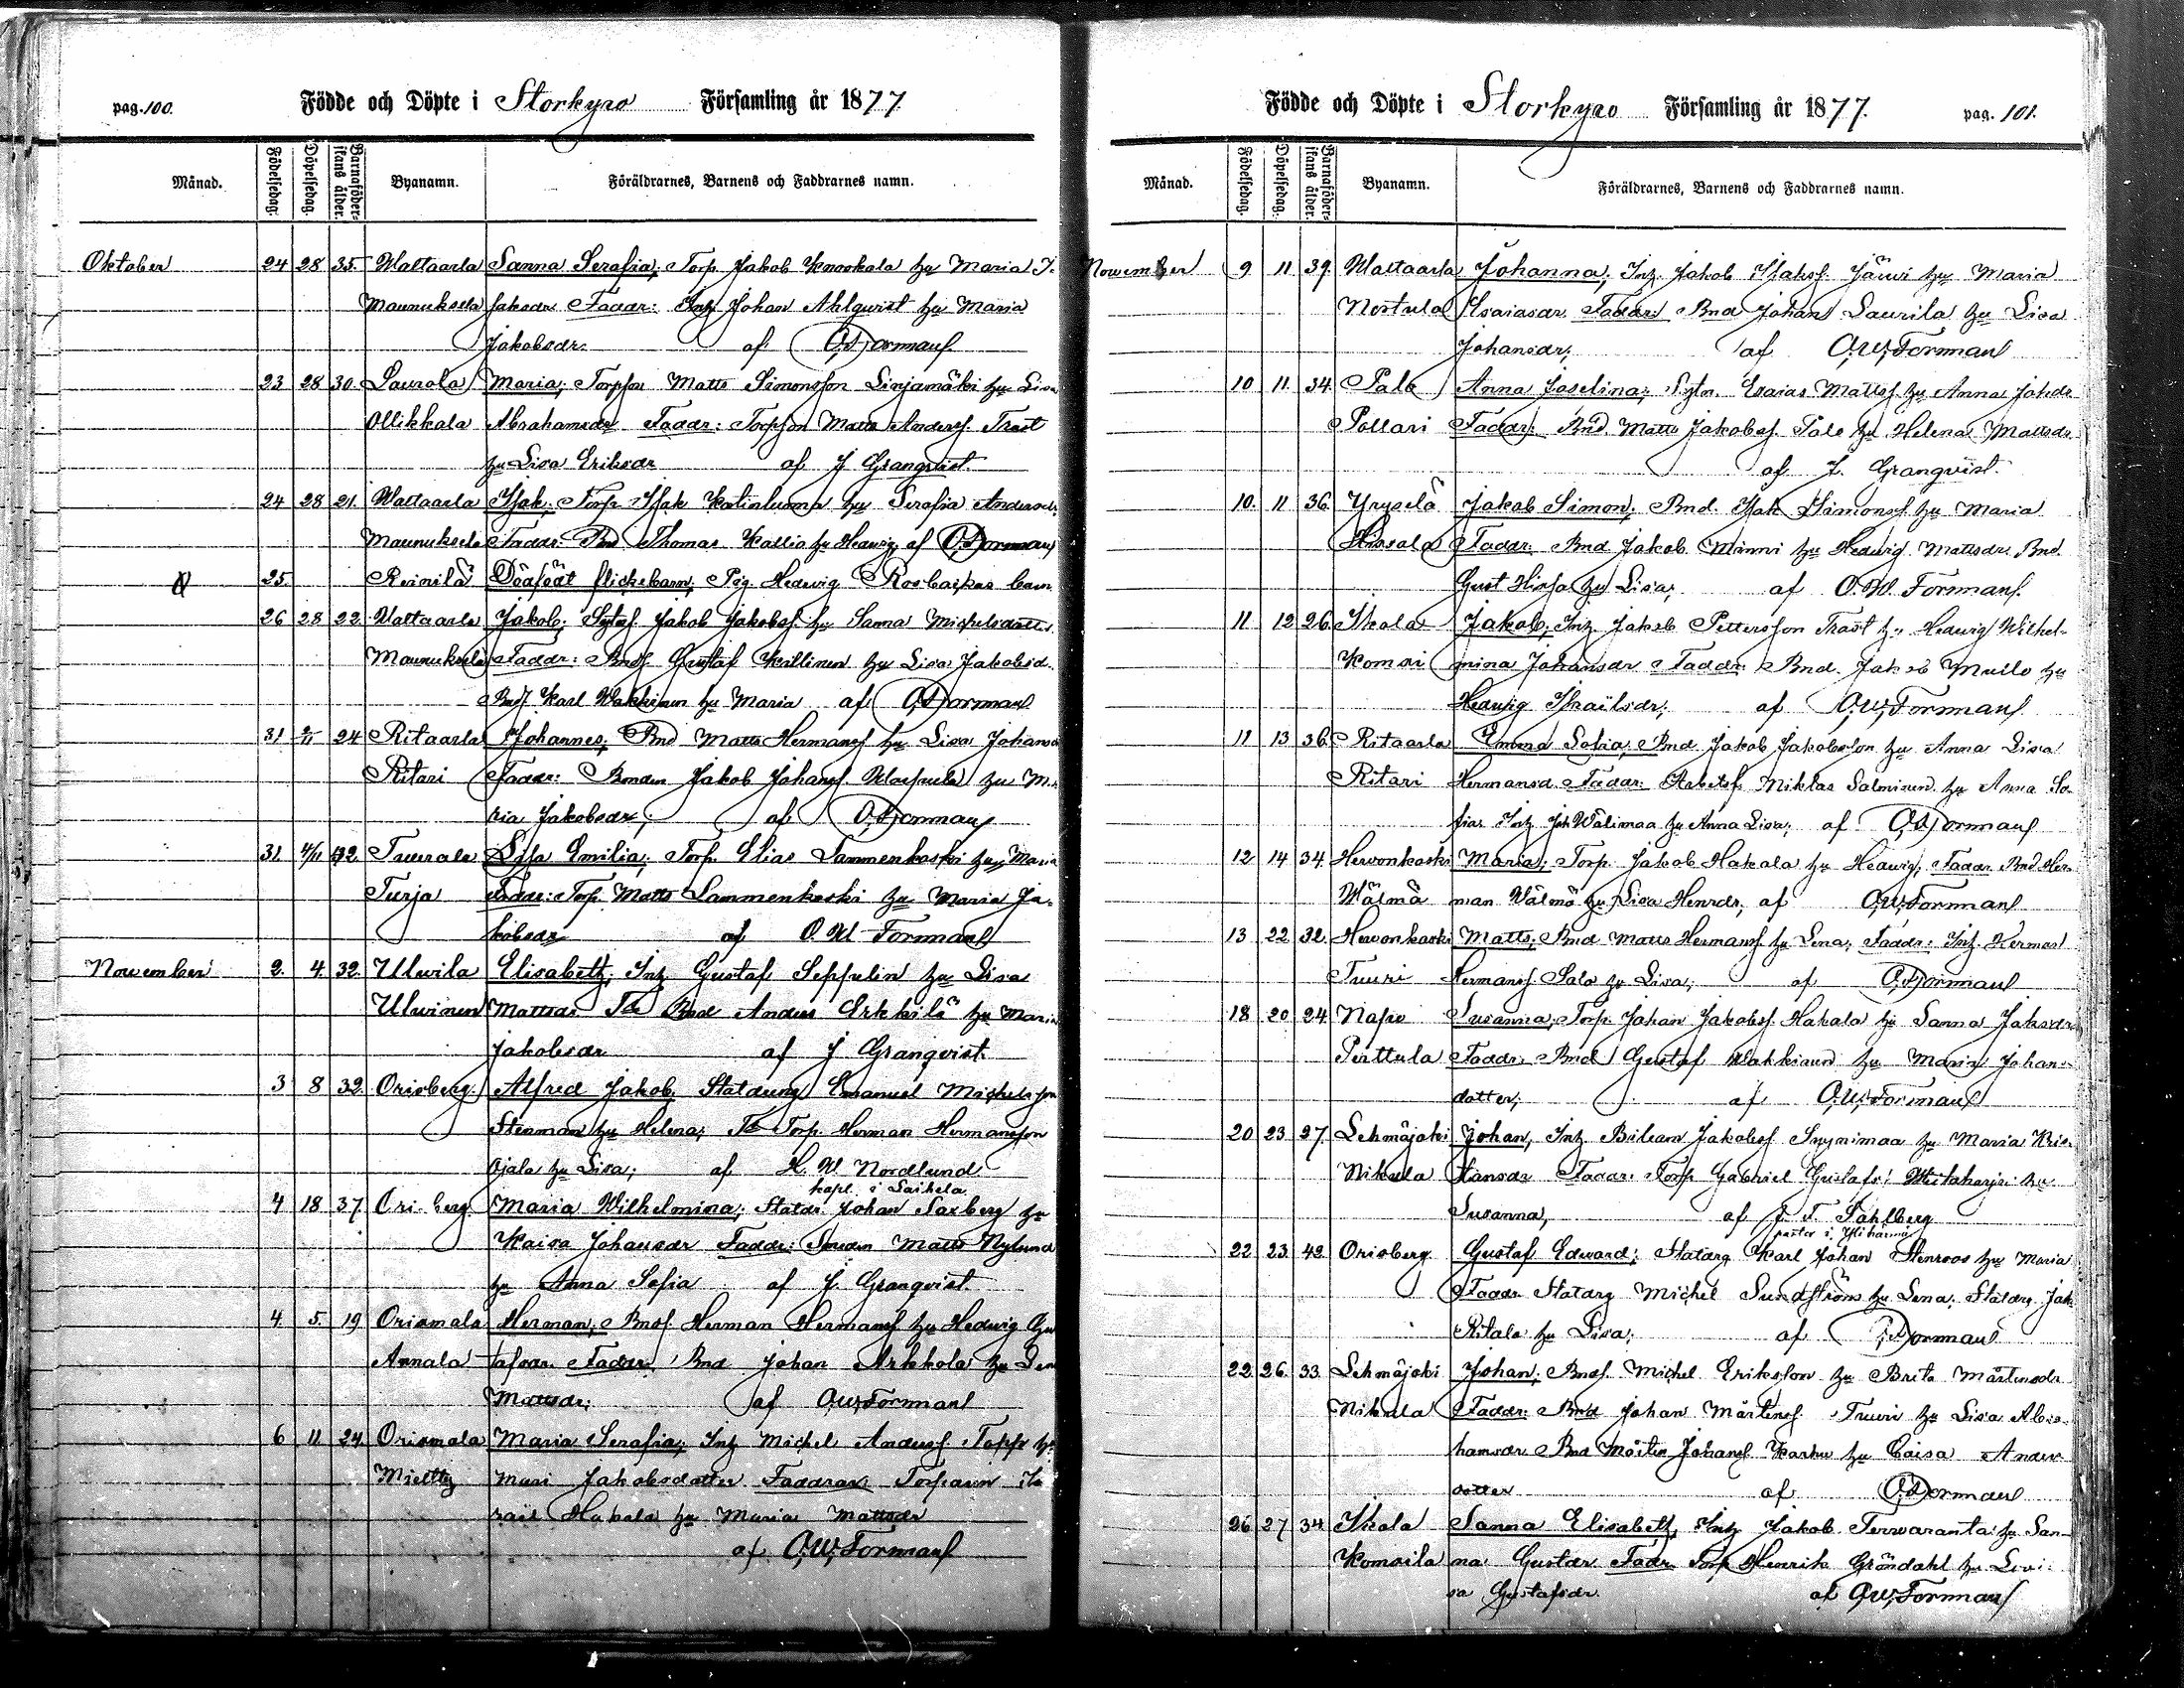 pag. 100.
Födde och Döpte i Storkyro Församling år 1877.
Månad. Födelsedag. Döpelsedag. Barnaföderskans ålder. Byanamn. Föräldrarnes, Barnens och Faddrarnes namn.
Oktober 24 28 35. Waltaarla Sanna Serafia; Torp. Jakob hu Maria I-
Maunuksela saksdr Faddr: Inh Johan Ahlqvist hu Maria
Jakobsdr. af O.W. Forsman
23 28 30. Laurola Maria; Torpson Matts Simonsson Linjamäki hu Lisa
Ollikkala Abrahamsdr Faddr: Torpson Matts Anders. Trast
hu Lisa Eriksdr af J Granqvist.
24 28 21. Waltaarla Isak; Torp. Isak Katinluoma hu Serafia Andersdr
Maunuksela Faddr: Bnd Thomas Kallio hu Hedwig af O.W. Forsman
25. Reinilä Dödfödt flickebarn; Pig. Hedwig barn
26 28 22 Waltaarla Jakob; Jakob Jakobss. hu Sanna Michelsdotter
Maunuksela Faddr: Bnds. Gustaf Killinen hu Lisa Jakobsd.
Bnds Karl Wakkinen hu Maria af O.W. Forsman
31. 2/11 24 Ritaarla Johannes; Bnd Matts Hermanss hu Lisa Johansd
Ritari Faddr: Bonden Jakob Johanss. hu Ma-
ria Jakobsdr; af O.W. Forsman
31. 4/11 42. Tuurala Lisa Emilia; Torp. Elias Lammenkoski hu Maria
Turja Faddr: Torp. Matts Lammenkoski hu Maria Ja-
kobsdr af O. W Forsman
November 2. 4. 32. Ulwila Elisabeth; Inh. Gustaf Seppelin hu Lisa
Ulwinen Mattsdr Bnd Anders Erkkilä hu Maria
Jakobsdr af J Granqvist.
3 8 32. Orisberg Alfred Jakob, Statdräng Emanuel Michelsson
Stenman hu Helena; Torp. Herman Hermansson
Ojala hu Lisa; af K. W. Nordlund
kapl. i Laihela
4 18 37 Orisberg Maria Wilhelmina; Statdr. Johan Saxberg hu
Kaisa Johansdr Faddr: Smeden Matts Nylund
hu Anna Sofia af J. Granqvist.
4. 5. 19 Orismala Herman; Bnds. Herman Hermanss hu Hedwig Gu-
Annala tafsdr. Faddr: Bnd Johan Arkkola hu Lena
Mattsdr; af O.W. Forsman
6 11 24 Orismala Maria Serafia; Inh Michel Anderss. Toppo hu
Mietty Mari Jakobsdotter Faddrar: Torparn Is-
rael Hakala hu Maria Mattsdr
af O.W. Forsman
Födde och Döpte i Storkyro Församling år 1877.
pag. 101.
Månad. Födelsedag. Döpelsedag. Barnaföderskans ålder. Byanamn. Föräldrarnes, Barnens och Faddrarnes namn.
November 9 11 39. Waltaarla Johanna; Inh. Jakob Isakss. Järwi hu Maria
Nortula Esaiasdr. Faddr: Bnd Johan Laurila hu Lisa
Johansdr; af O.W. Forsman
10 11 34. Palo Anna Joselina; Sytn. Esaias Mattss. hu Anna Johsdr
Pollari Faddr: Bnd. Matts Jakobss. Palo hu Helena Mattsdr
af J. Granqvist.
10. 11 36. Yryselä Jakob Simon; Bnd. Isak Simonss. hu Maria
Hissala Faddr: Bnd Jakob Minni hu Hedwig Mattsdr. Bnd.
Gust Hissa hu Lisa; af O.W. Forsman.
11 12 26. Ikola Jakob; Inh Jakob Pettersson Trast hu Hedwig Wilhel-
Komsi mina Johansdr Faddr: Bnd. Jakob Muilo hu
Hedwig Israilsdr; af O.W. Forsman
11 13 36. Ritaarla Emma Sofia; Bnd. Jakob Jakobsson hu Anna Lisa
Ritari Hermansd. Faddr: Niklas Salminen hu Anna So-
fia. Inh Joh Wälimaa hu Anna Lisa; af O.W. Forsman
12. 14 34. Herwonkoski Maria; Torp. Jakob Hakala hu Hedwig; Faddr Bnd Her-
Wälmä man Wälmä hu Lisa Henrdr; af O.W. Forsman
13 22 32. Herwonkoski Matts; Bnd Matts Hermanss hu Lena; Faddr: Inh Herman
Tuuri Hermanss. Salo hu Lisa; af O.W. Forsman
18 20 24. Napo Susanna; Torp. Johan Jakobss. Hakala hu Sanna Jaksdr
Perttula Faddr: Bnd Gustaf Wakkinen hu Maria Johans-
dotter; af O.W. Forsman
20 23 27. Lehmäjoki Johan; Inh Jakobss. Snynimaa hu Maria Kris-
Nikula tiansdr Faddr: Torp Gabriel Gustafs. hu
Susanna; af J. F. Sahlberg
pastor i Ylihärmä
22 23 42 Orisberg. Gustaf Edward; Statdrg Karl Johan Stenroos hu Maria
Faddr. Statdrg Michel Sundström hu Lena; Statdrg. Jak.
Ritala hu Lisa; af O.W. Forsman
22 26 33. Lehmäjoki Johan; Bnds. Michel Eriksson hu Brita Mårtensdr
Nikula Faddr: Bnd Johan Mårtenss. Tuuri hu Lisa Abra-
hamsdr Bnd Mårten Johanss Karhu hu Caisa Anders-
dotter af O.W. Forsman
26 27 34 Ikola Sanna Elisabeth; Inh Jakob Terwaranta hu San-
Komsila na Gustdr. Faddr Torp Henrik Gröndahl hu Lovi-
sa Gustafsdr. af O.W. Forsman